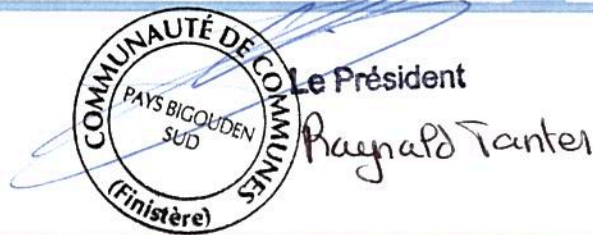 COMMUNAUTÉ DE COMMUNES
PAYS BIGOUDEN
SUD
(Finistère)
Le Président
Raynald Tanter